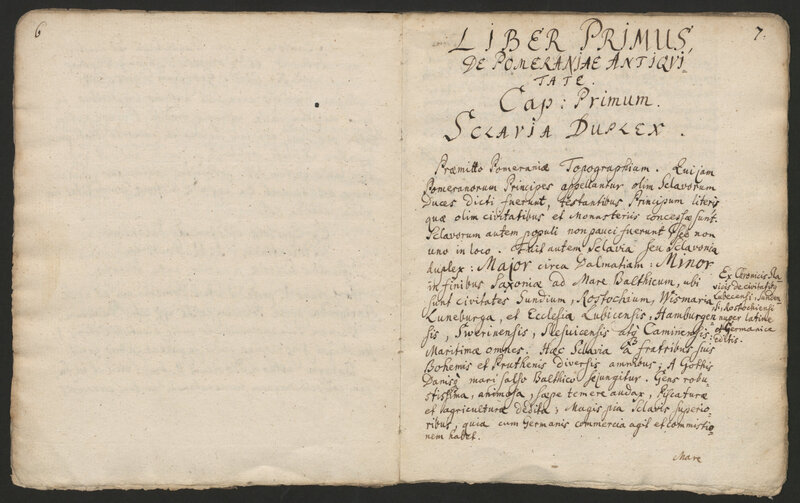 6
7.
LIBER PRIMUS,
DE POMERANIAE ANTIQVI-
TATE.
Cap: Primum.
SCLAVIA DUPLEX.
Præmitto Pomeraniæ Topographium. Qui jam
Pomeranorum Principes appellantur olim Sclavorum
Duces dicti fuerunt, testantibus Principum literis
quæ olim civitatibus et Monasteriis concessæ sunt.
Sclavorum autem populi non pauci fuerunt sed non
uno in loco. Fuit autem Sclavia seu Sclavonia
duplex: Major circa Dalmatiam: Minor
in finibus Saxoniæ ad Mare Balthicum, ubi
sunt civitates Sundium, Rostochium, Wismaria
Luneburga, et Ecclesiæ Lubicensis, Hamburgen
sis, Swerinensis, Slesuicensis atq Caminensis
Maritimæ omnes. Hæc Sclavia a fratribus suis
Bohemis et Pruthenis diversis amnibus; A Gothis
Danisq mari salso Balthico sejungitur. Gens robu
stissima, animosa, sæpe temere audax, Piscaturæ
et agriculturæ dedita; Magis pia Sclavis superio-
ribus, quia cum Germanis commercia agit et commistio
nem habet.
Mare
Ex Chronicis Sla
vicis de civitatib
Lubecensi, Sunden
si, Rostochiensi
nuper latine
et Germanice
editis.